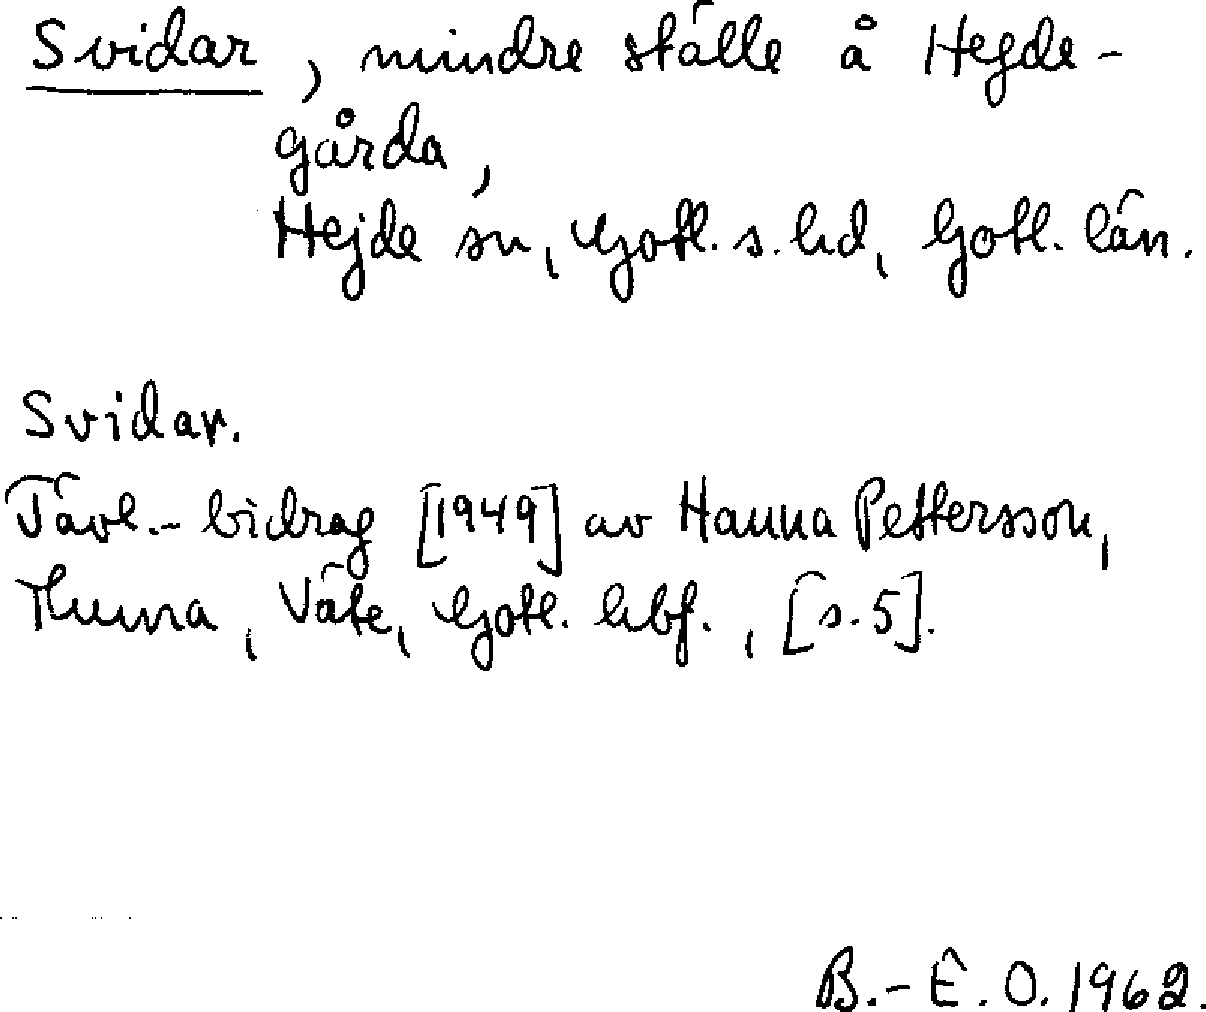 Svidar, mindre ställe å Hejde-
gårda,
Hejde sn, Gotl. s. hd, Gotl. län.
Svidar.
Tävl.-bidrag [1949] av Hanna Pettersson,
Väte, Gotl. hbf., [s. 5].
B.-E. O. 1962.